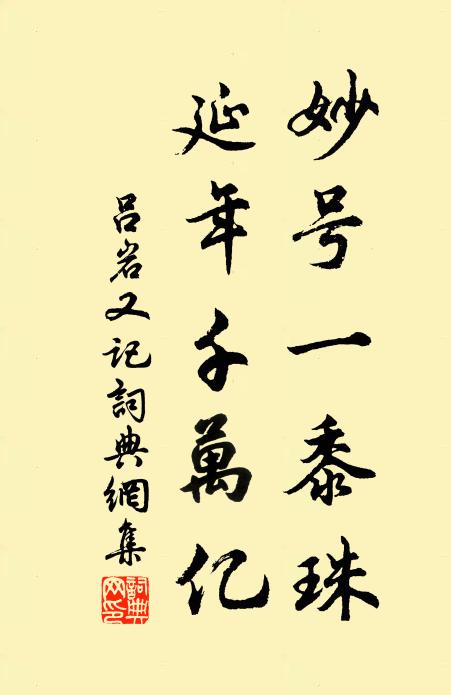 妙号一黍珠
延年千萬亿
吕岩又记詞典網集
詞典網印